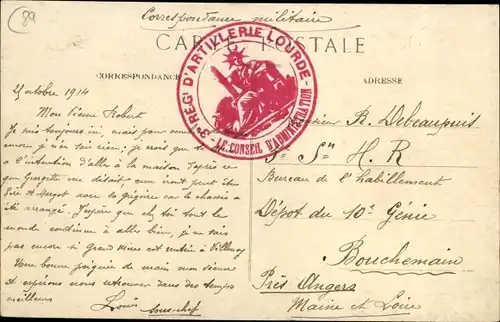 89
Correspondance militaire
CARTE POSTALE
CORRESPONDANCE
ADRESSE
3e REGt D'ARTILLERIE LOURDE
LE CONSEIL D'ADMINISTRATION
25 octobre 1914
Mon Vieux Robert
Je suis toujours ici mais pour
encore je n'en sais rien; je crois que
a l'intention d'aller à la maison d'après ce
que Georgette me disait, cum iront peut être
Margot avec ta si la chasse a
été arrangé. J'espère que chez toi tout le
monde continue à aller bien, je ne sais
pas encore si Grand Mère est rentrée à Villenoy
Une bonne poignée de main mon vieux
et espérons nous retrouver dans des temps
meilleurs Louis sous-chef
Monsieur R. Debeaupuis
S. H. R
Bureau de l'habillement
Dépôt du 10e Génie
Bouchemain
Près Angers
Maine et Loire